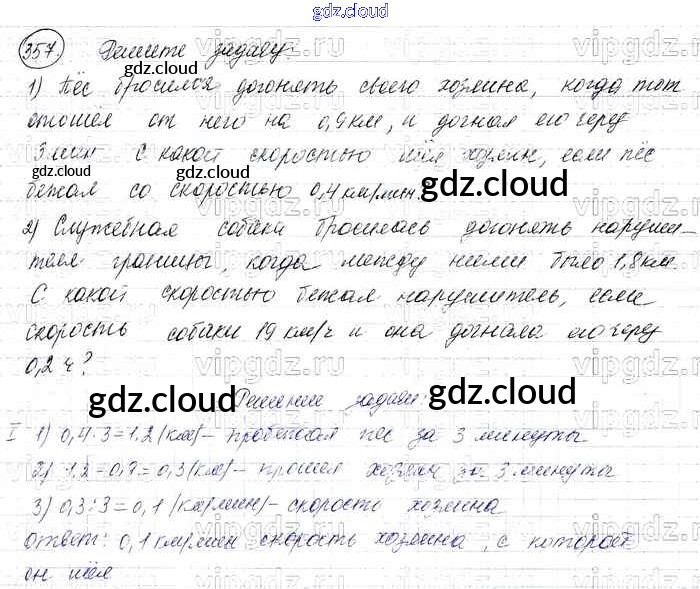 gdz.cloud
357. Решите задачу:
gdz.cloud
1) Пёс бросился догонять своего хозяина, когда тот
отошёл от него на 0,9 км, и догнал его через
3 мин С какой скоростью шёл хозяин, если пёс
бежал со скоростью 0,4 км/мин.
gdz.cloud
gdz.cloud
2) Служебная собака бросилась догонять наруши-
теля границы, когда между ними было 1,8 км.
С какой скоростью бежал нарушитель, если
скорость собаки 19 км/ч и она догнала его через
0,2 ч?
gdz.cloud
gdz.cloud
Решение задачи:
I 1) 0,4·3=1.2 (км)– пробежал пёс за 3 минуты
2) 1,2–0,9=0,3(км)– прошёл хозяин за 3 минуты
3) 0,3:3=0,1 (км/мин)– скорость хозяина
ответ: 0,1 км/мин скорость хозяина, с которой
он шёл